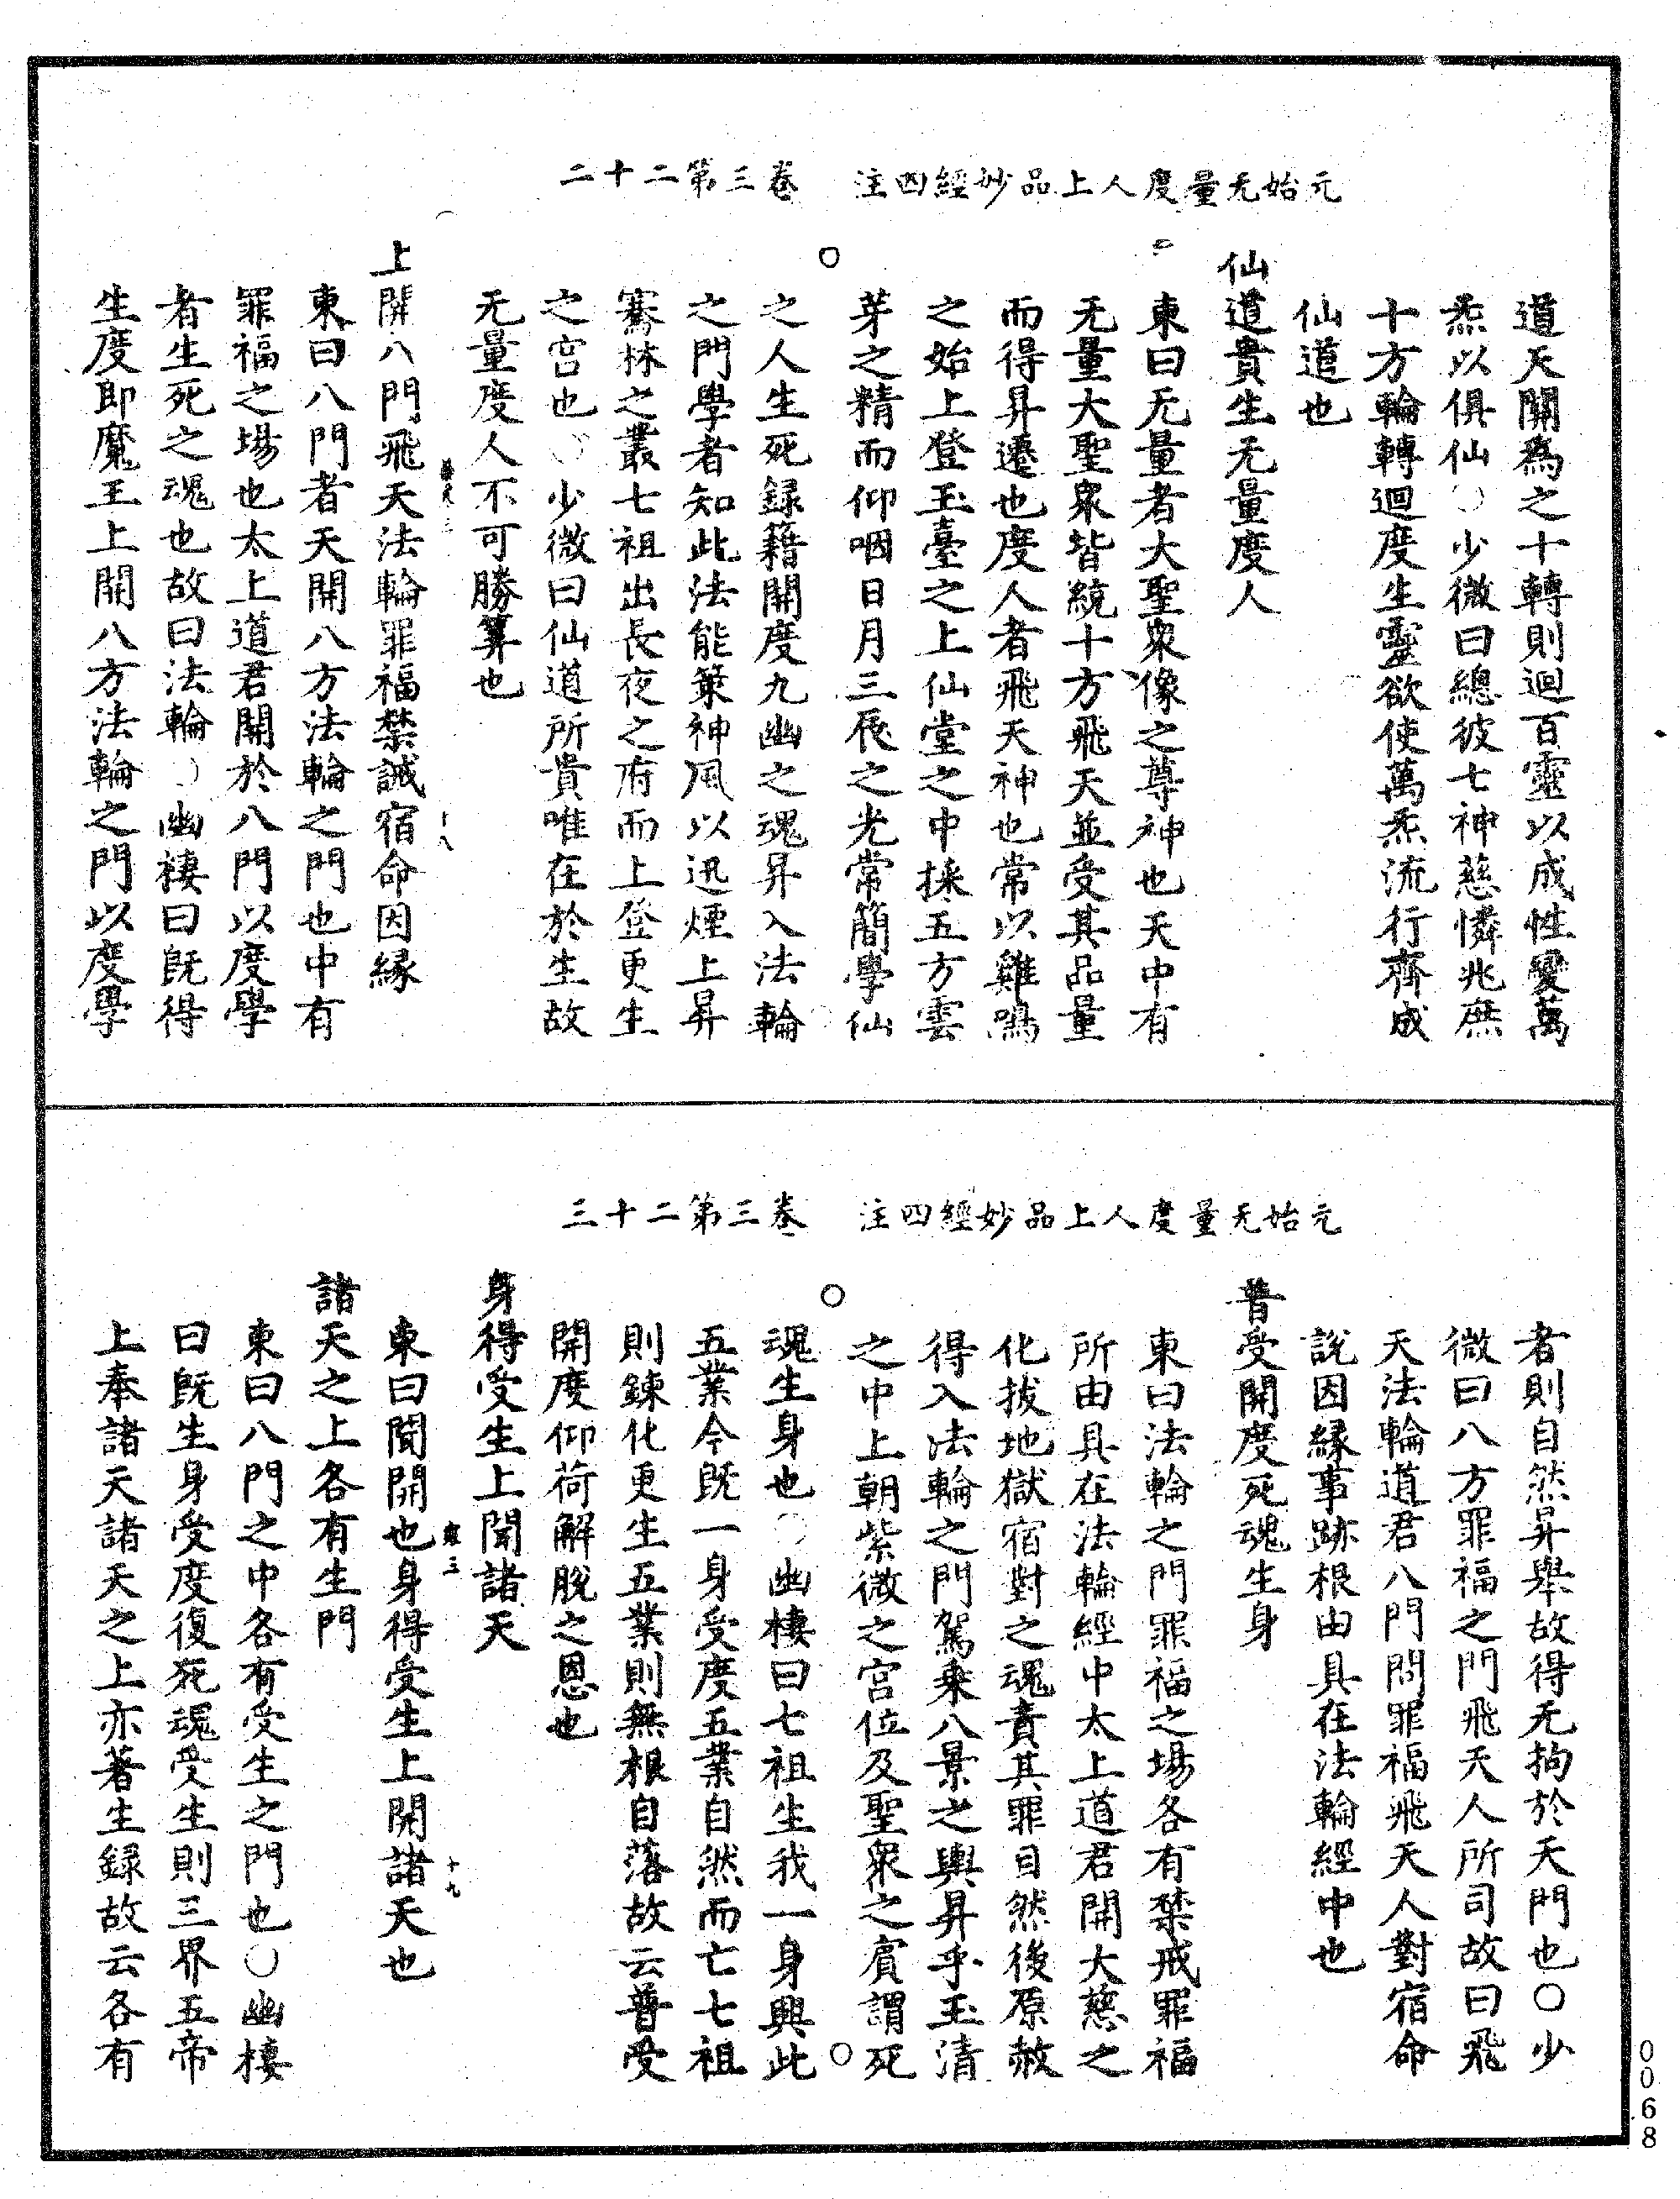 元始无量度人上品妙經四注　卷三第二十二
道天關為之十轉則迴百靈以成性愛萬
炁以俱仙○少微曰總彼七神慈憐兆庶
十方輪轉迴度生靈欲使萬炁流行齊成
仙道也
仙道貴生无量度人
東曰无量者大聖衆像之尊神也天中有
无量大聖衆皆統十方飛天並受其品量
而得昇遷也度人者飛天神也常以雞鳴
之始上登玉臺之上仙堂之中採五方雲
芽之精而仰咽日月三辰之光常簡學仙
之人生死録籍開度九幽之魂昇入法輪
之門學者知此法能策神風以迅煙上昇
騫林之叢七祖出長夜之府而上登更生
之宮也○少微曰仙道所貴唯在於生故
无量度人不可勝筭也
上開八門飛天法輪罪福禁誡宿命因緣
十八
東曰八門者天開八方法輪之門也中有
罪福之場也太上道君開於八門以度學
者生死之魂也故曰法輪○幽棲曰旣得
生度即魔王上開八方法輪之門以度學
元始无量度人上品妙經四注　卷三第二十三
者則自然昇舉故得无拘於天門也○少
微曰八方罪福之門飛天人所司故曰飛
天法輪道君八門問罪福飛天人對宿命
說因緣事跡根由具在法輪經中也
普受開度死魂生身
東曰法輪之門罪福之場各有禁戒罪福
所由具在法輪經中太上道君開大慈之
化拔地獄宿對之魂責其罪目然後原赦
得入法輪之門駕乗八景之輿昇乎玉清
之中上朝紫微之宮位及聖衆之賔謂死
魂生身也○幽棲曰七祖生我一身興此
五業今旣一身受度五業自然而亡七祖
則錬化更生五業則無根自落故云普受
開度仰荷解脫之恩也
身得受生上聞諸天
東曰聞開也身得受生上開諸天也
十九
諸天之上各有生門
東曰八門之中各有受生之門也○幽棲
曰旣生身受度復死魂受生則三界五帝
上奉諸天諸天之上亦著生録故云各有
0068